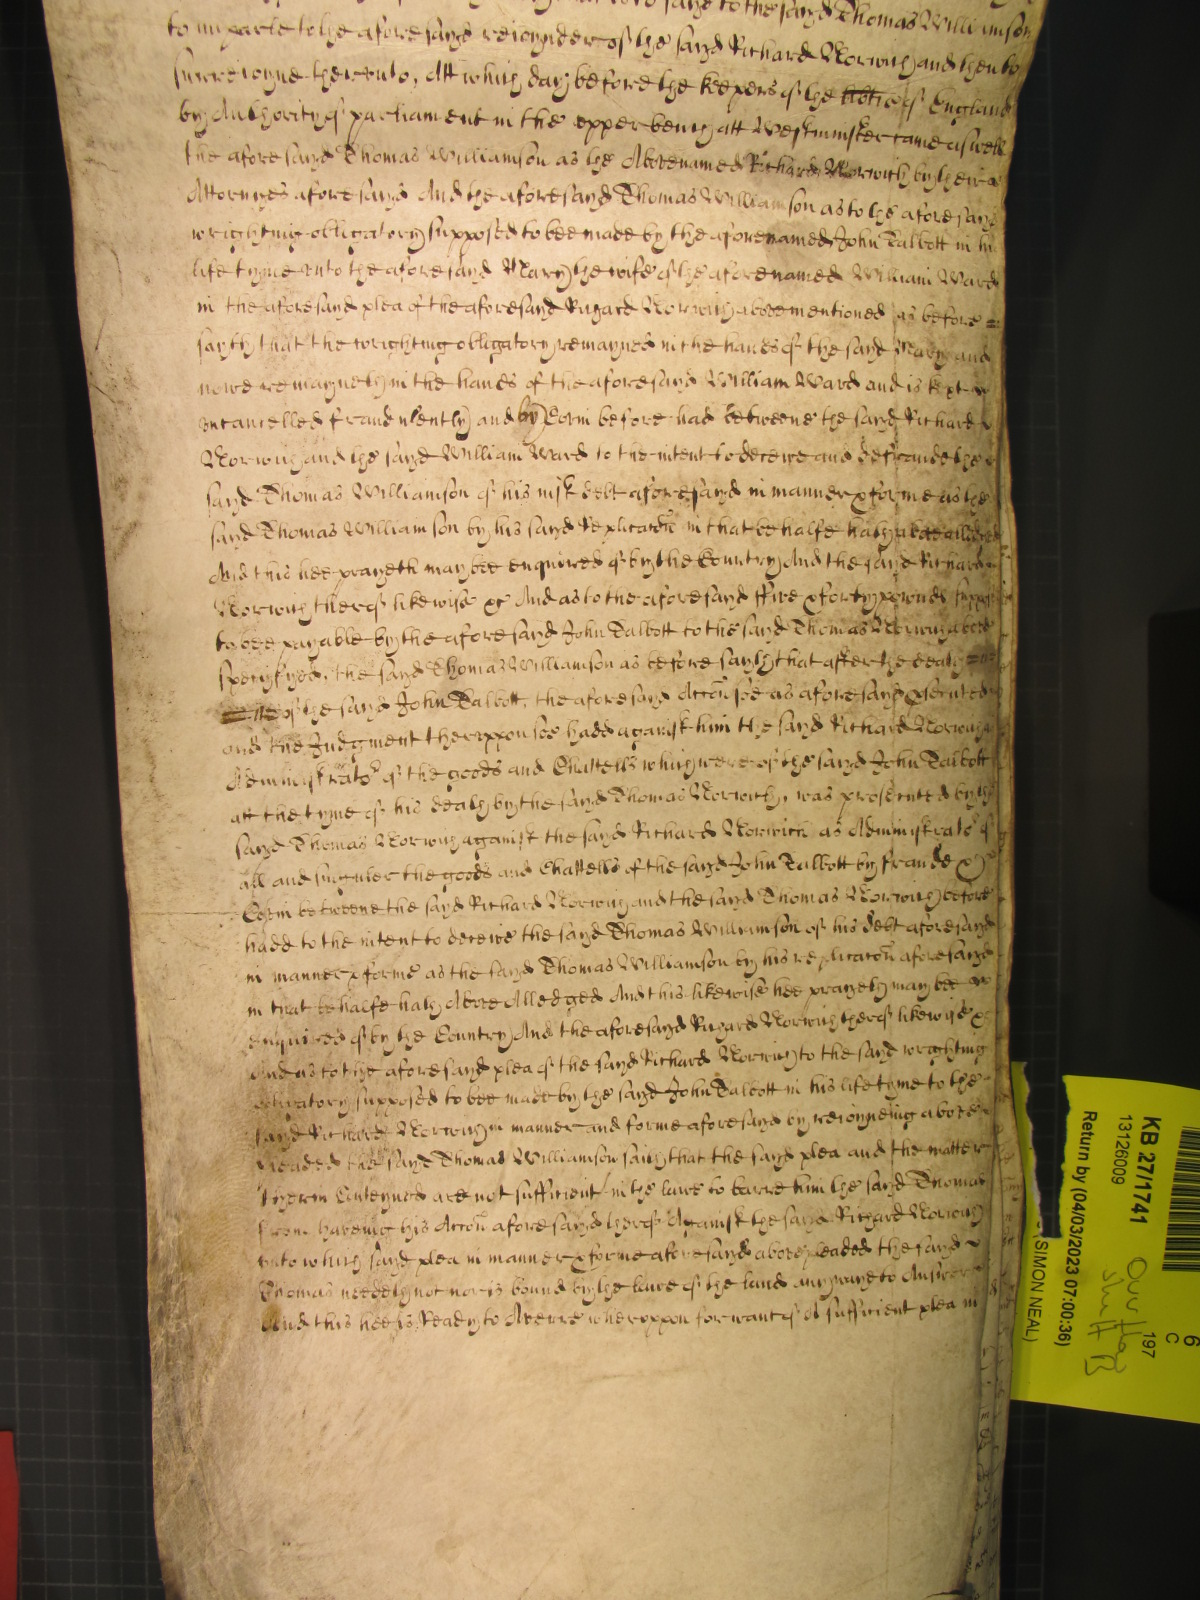 sayd to the sayd Thomas Williamson
to imparle to the aforesayd reioynder of the sayd Richard Norwich and then to
surreioyne therunto, Att which day before the keepers of the libtie of England
by Authority of parliament in the vpper bench att Westminster came aswell
the aforesayd Thomas Williamson as the Abovenamed Richard Norwich by theire
Attornyes aforesayd And the aforesayd Thomas Williamson as to the aforesayd
wrighting obligatory supposed to bee made by the aforenamed John Talbott in his
life tyme vnto the aforesayd Mary the wife of the aforenamed William Ward
in the aforesayd plea of the aforesayd Richard Norwich above mentioned as before
sayth that the wrighting obligatory remayned in the hands of the sayd Mary and
nowe remayneth in the hands of the aforesayd William Ward and is kept
vncancelled fraudulently and by Covin before had betweene the sayd Richard
Norwich and the sayd William Ward to the intent to deceive and defraude the
sayd Thomas Williamson of his iust debt aforesayd in manner & forme as the
sayd Thomas Williamson by his sayd Replicacon in that behalfe hath above alledged
And this hee prayeth may bee enquired of by the Country And the sayd Richard
Norwich therof likewise &c And as to the aforesayd ffive & forty pownds suppos
to bee payable by the aforesayd John Talbott to the sayd Thomas Norwich above
specifyed, the sayd Thomas Williamson as before sayth that after the death
of the sayd John Talbott, the aforesayd Accon soe as aforesayd & secuted
and the Judgment theruppon soe hadd against him the sayd Richard Norwich
Administrator of the goods and Chattells which were of the sayd John Talbott
att the tyme of his death by the sayd Thomas Norwich, was prosecuted by the
sayd Thomas Norwich against the sayd Richard Norwich as Administrator of
all and singuler the goods and Chattells of the sayd John Talbott by fraude &
Covin betweene the sayd Richard Norwich and the sayd Thomas Norwich before
hadd to the intent to deceive the sayd Thomas Williamson of his debt aforesayd
in manner & forme as the sayd Thomas Williamson by his replicacon aforesayd
in that behalfe hath Above Alledged And this likewise hee prayeth may bee
enquired of by the Country And the aforesayd Richard Norwich therof likewise &c
And as to the aforesayd plea of the sayd Richard Norwich to the sayd wrighting
obligatory supposed to bee made by the sayd John Talbott in his life tyme to the
sayd Richard Norwich in manner and forme aforesayd by reioyneing above
pleaded the sayd Thomas Williamson saith that the sayd plea and the matter
therein Conteyned are not sufficient in the lawe to barre him the sayd Thomas
from haveing his Accon aforesayd therof Against the sayd Richard Norwich
vnto which sayd plea in manner & forme aforesayd above pleaded the sayd
Thomas needeth not nor is bound by the lawe of the land any waye to Answer
And this hee is Ready to Averre wheruppon for want of A sufficient plea in
KB 27/1741
13126009
Return by (04/03/2023 07:00:36)
(SIMON NEAL)
197
6
C